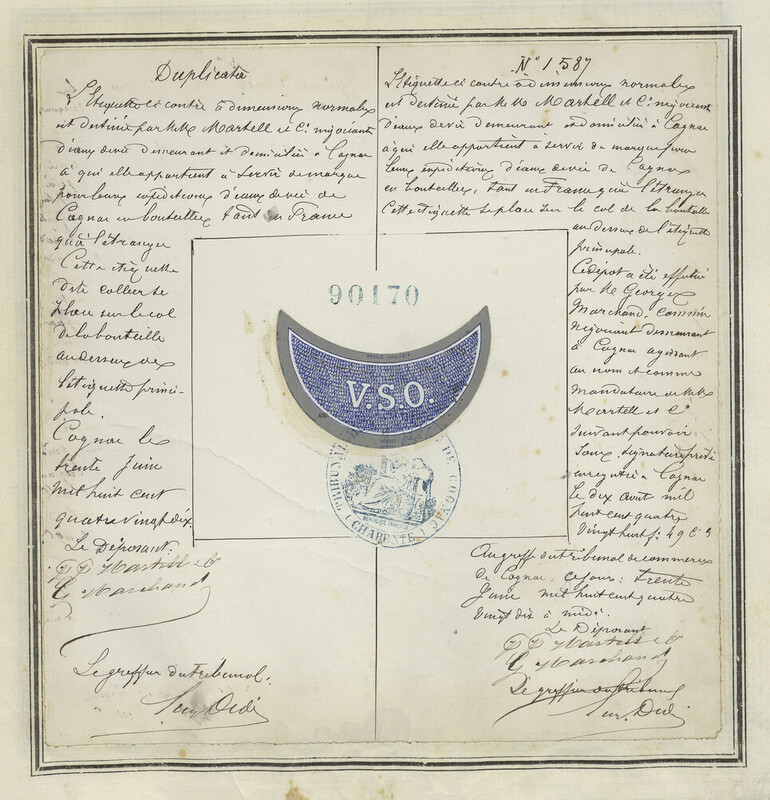 Duplicata
L'Etiquette ci contre à dimensions normales
est destinée par MM. Martell et Cie négociants
d'eaux de vie demeurant et domiciliés à Cognac
à qui elle appartient à servir de marque
pour leurs expéditions d'eaux de vie de
Cognac en bouteilles tant en France
qu'à l'étranger
Cette étiquette
dite collier se
place sur le col
de la bouteille
au dessus de
l'étiquette princi-
pale.
Cognac le
trente Juin
mil huit cent
quatre vingt dix
Le Déposant
PP Martell & Co
G Marchand
Le greffier du tribunal.
N° 1587
L'étiquette ci contre à dimensions normales
est destinée par MM. Martell et Cie négociants
d'eaux de vie demeurant et domiciliés à Cognac
à qui elle appartient à servir de marque pour
leurs expéditions d'eaux de vie de Cognac
en bouteilles, tant en France qu'à l'étranger
Cette étiquette se place sur le col de la bouteille
au dessus de l'étiquette
principale.
Ce dépôt a été effectué
par M. Georges
Marchand, commis
négociant demeurant
à Cognac agissant
au nom et comme
mandataire de MM.
Martell et Cie
suivant pouvoir
sous signature privée
enregistré à Cognac
le dix août mil
huit cent quatre
vingt huit fo 49 C 5
Au greffe du tribunal de commerce
de Cognac, ce jour: trente
Juin mil huit cent quatre
vingt dix à midi.
Le Déposant
PP Martell & Co
G Marchand
Le greffier du tribunal
90170
V.S.O.
TRIBUNAL DE COGNAC
RÉPUBLIQUE FRANÇAISE
(CHARENTE)